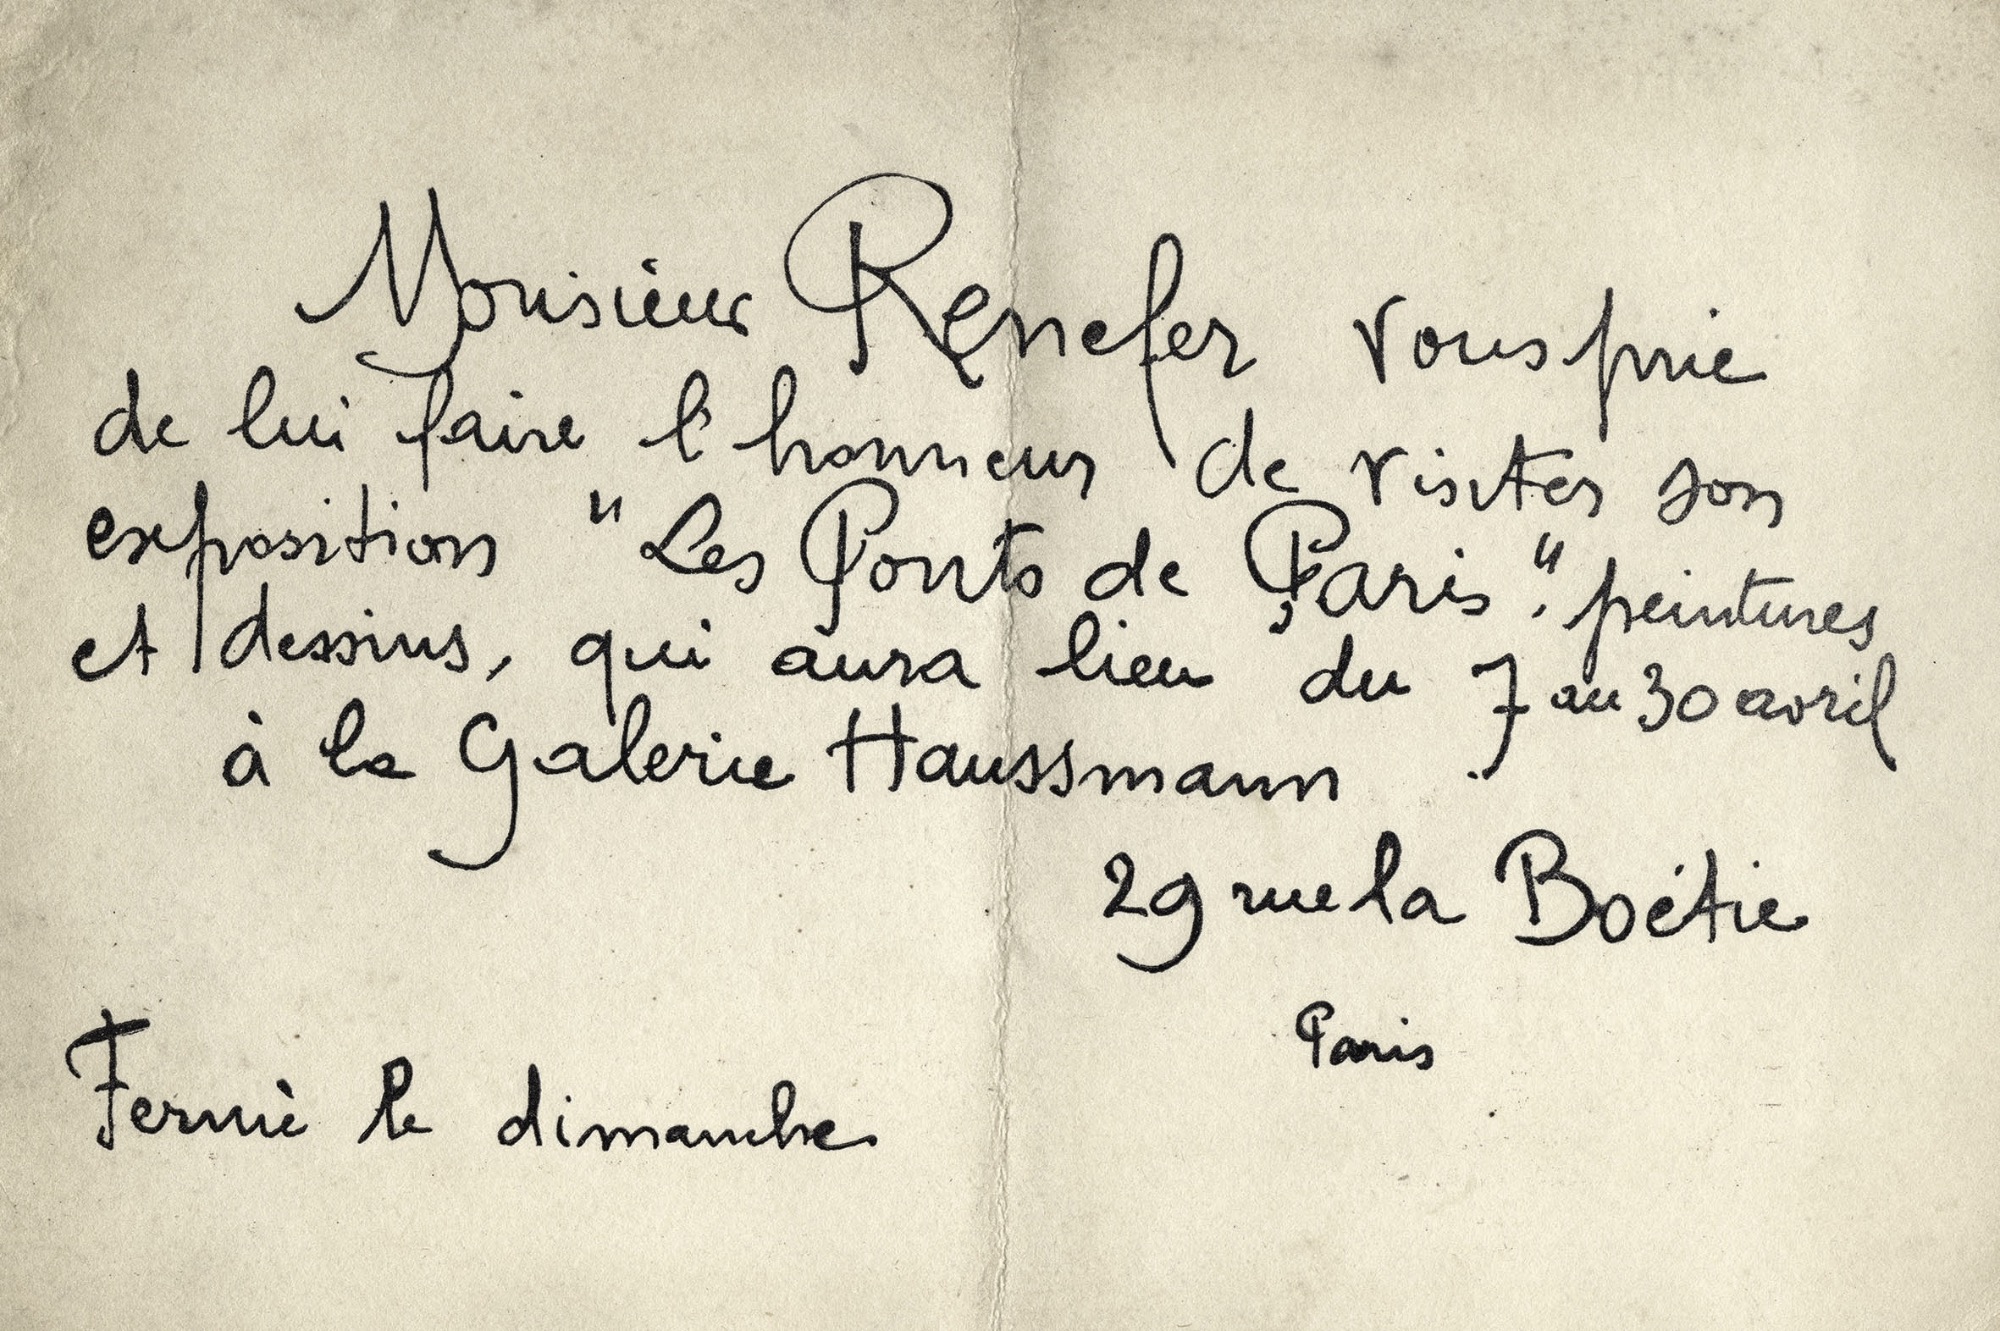 Monsieur Renefer vous prie
de lui faire l'honneur de visiter son
exposition "Les Ponts de Paris", peintures
et dessins, qui aura lieu du 7 au 30 avril
à la Galerie Haussmann
29 rue la Boétie
Paris
Fermé le dimanche